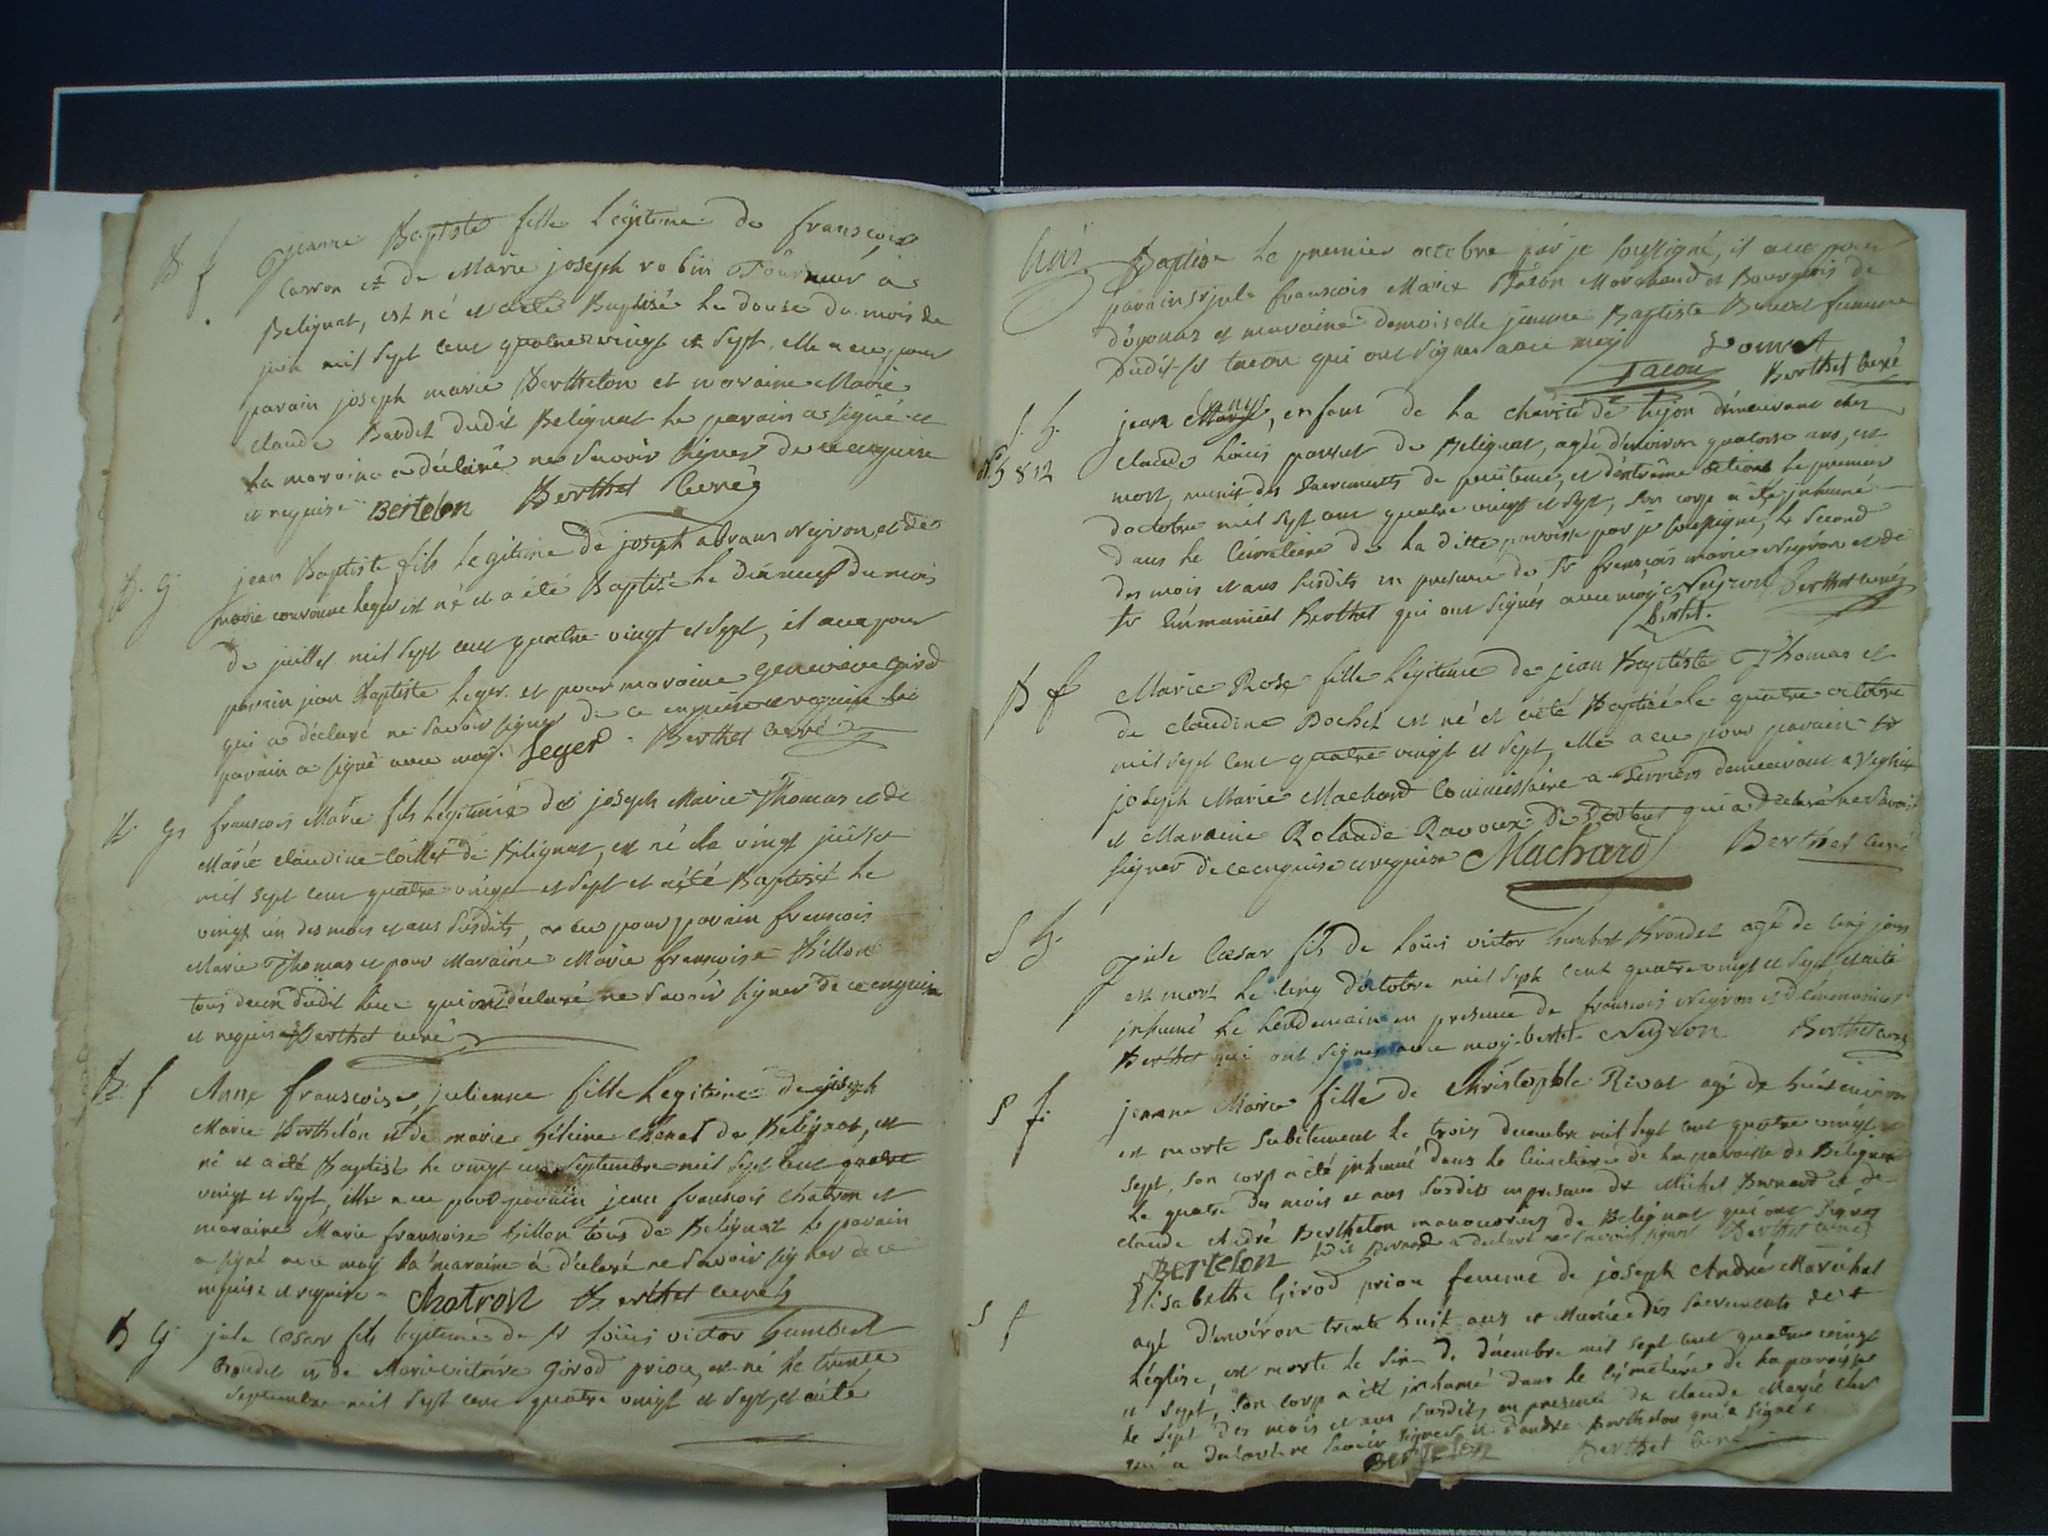 B. f jeanne Baptiste fille légitime de franscois
Carron et de Marie joseph robin Tourneur à
Belignat, est né et a été Baptisé le douse du mois de
juin mil sept cent quatre vingt et sept, elle a eu pour
parain joseph marie Berthelon et maraine Marie
claude Bardet dudit Belignat le parain a signé et
la maraine a déclaré ne savoir signer de ce enquise
et requise Bertelon Berthet Curéz
B. G jean Baptiste fils legitime de joseph abram Neyron et de
marie couronne leger est né et a été Baptisé le dixneuf du mois
de juillet mil sept cent quatre vingt et sept, il a eu pour
parain jean Baptiste leger et pour maraine genevieve girod
qui a déclaré ne savoir signer de ce enquise et requise le
parain a signé avec moy. Leger Berthet curé
B. G franscois Marie fils légitime de joseph Marie Thomas et de
Marie claudine de Bélignat, est né le vingt juillet
mil sept cent quatre vingt et sept et a été Baptisé le
vingt un des mois et ans susdits, a eu pour parain franscois
Marie Thomas et pour Maraine Marie franscoise Billon
tous deux dudit lieu qui ont déclaré ne savoir signer de ce enquis
et requis Berthet curé
B. f Anne franscoise julienne fille legitime de joseph
Marie Berthelon et de marie héleine chanal de Belignat, est
né et a été Baptisé le vingt un septembre mil sept cent quatre
vingt et sept, elle a eu pour parain jean franscois chatron et
maraine Marie franscoise billon tous de Belignat le parain
a signé avec moy la maraine à déclaré ne savoir signer de ce
enquise et requise - Chatron Berthet curéz
B G jule Cæsar fils legitime de Sr loüis victor humbert
Brondet et de Marie victoire Girod priou, est né le trente
septembre mil sept cent quatre vingt et sept, et a été
Baptisé le premier octobre par je soussigné, il a eu pour
parain Sr jule franscois Marie Tacon Marchand et Bourgeois de
d'oyonas et maraine demoiselle jeanne Baptiste femme
dudit Sr tacon qui ont signés avec moy
Tacon Berthet Curé
S. G. jean, enfant de la charité de lijon démeurant chez
N° 5812 claude loüis de Bélignat, agée d'environ quatorse ans, est
mort, munit des Sacrements de penitence, et d'extrême onctions le premier
d'octobre mil sept cent quatre vingt et sept, son corp a été jnhumé
dans le cimetiere de la ditte paroisse par je soussigné, le second
des mois et ans susdits en presence de Sr franscois marie Neyron et de
Sr Emmaniuel Berthet qui ont signés avec moy Neyron Berthet curéz
bertet.
B f Marie Rose fille légitime de jean Baptiste Thomas et
de claudine Bochet est né et a été Baptisé le quatre octobre
mil sept cent quatre vingt et sept, elle a eu pour parain Sr
joseph Marie Machard Commissaire a Terriers demeurant a
et Maraine Rolande Ravoux de qui a déclaré ne savoir
signer de ce enquise et requise Machard Berthet curé
S G. Jule Cæsar fils de loüis victor humbert Brondet agé de cinq jours
est mort le cinq d'octobre mil sept cent quatre vingt et sept, et a été
jnhumé le lendemain en presence de franscois Neyron et d'emmaniuel
Berthet qui ont signés avec moy. bertet Neyron Berthet curéz
S f. jeanne Marie fille de Christophle Rivat agé de huit environ
est morte subitement le trois decembre mil sept cent quatre vingt et
sept, son corp a été jnhumé dans le cimetiere de la paroisse de Bélignat
le quatre des mois et ans susdits en presence de Michel Bernard et de
claude André Berthelon manouvriers de Belignat qui ont signés
Bertelon ledit Bernard a déclaré ne savoir signer Berthet curéz
S f Elisabethe Girod priou femme de joseph André Maréchal
agé d'environ trente huit ans et Muniée des sacrements de st
léglise, est morte le six de décembre mil sept cent quatre vingt
et sept, son corp a été jnhumé dans le cymetiere de la paroisse
le sept des mois et ans susdits, en presence de claude Marie
qui a déclaré ne savoir signer et d'andré Berthelon qui a signé
Bertelon Berthet curé